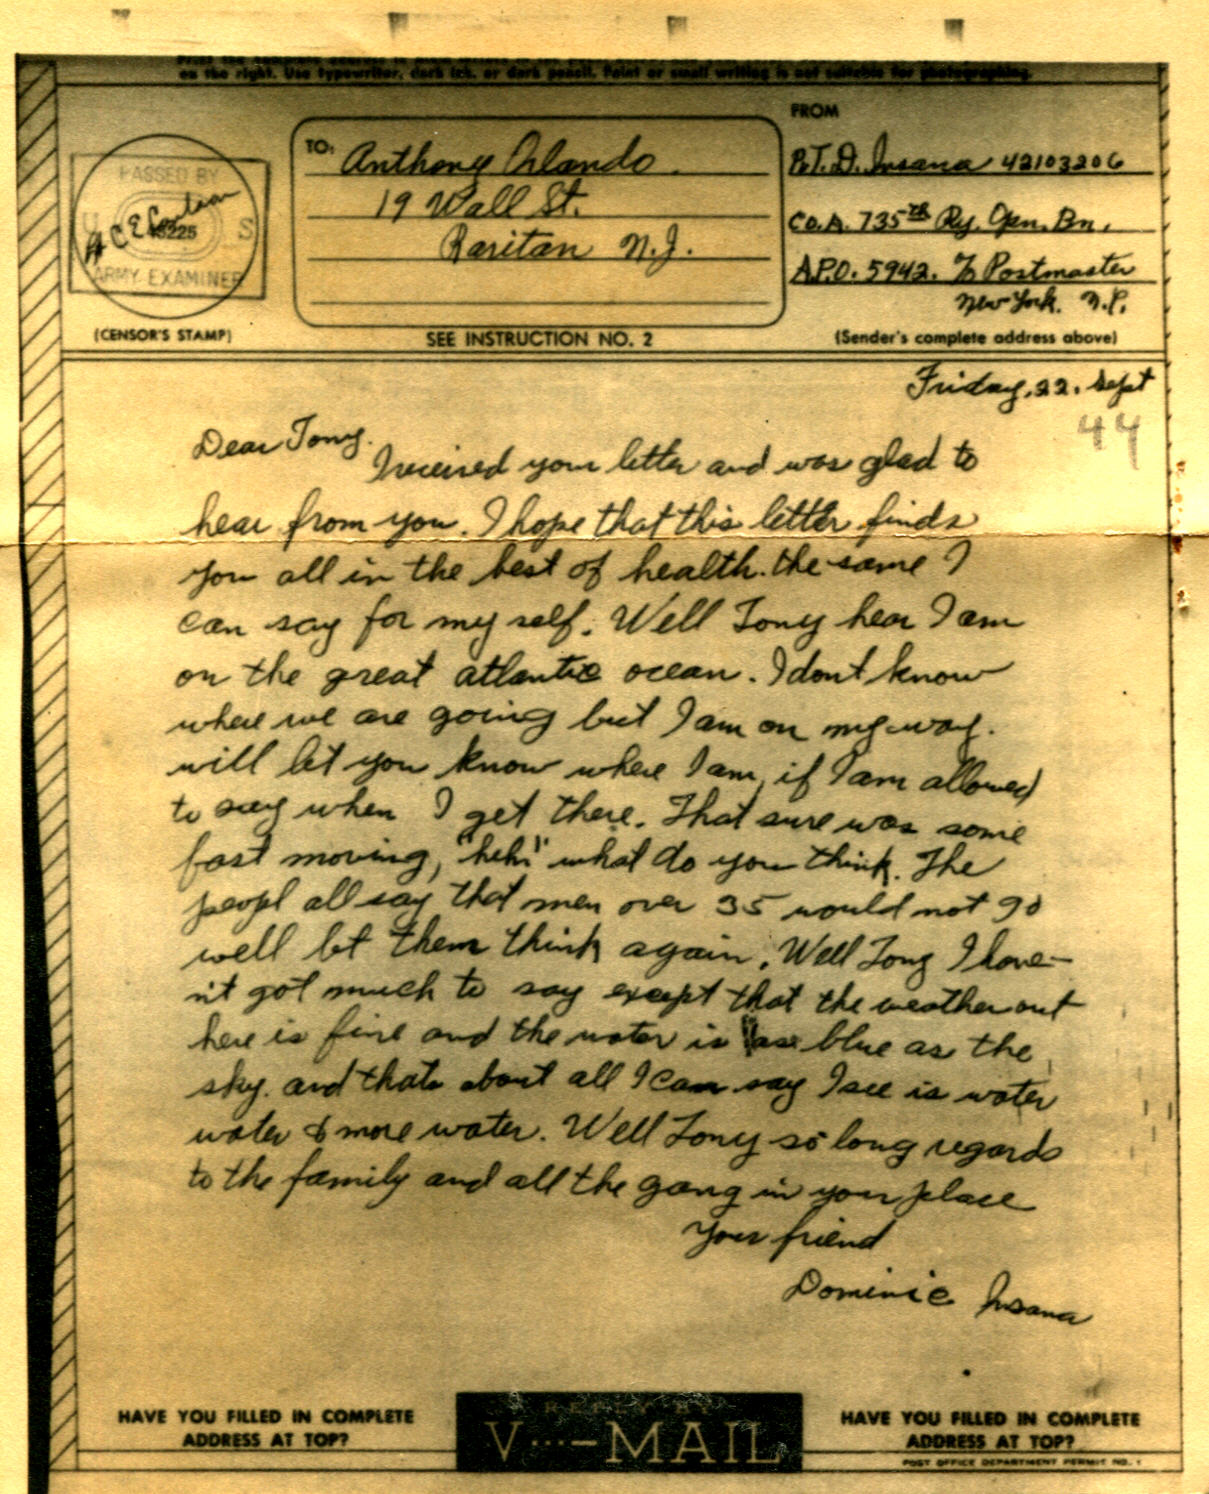 on the right. Use typewriter, dark ink, or dark pencil. Faint or small writing is not suitable for photographing.
PASSED BY
U S
ARMY EXAMINER
(CENSOR'S STAMP)
TO: Anthony Orlando
19 Wall St.
Raritan N.J.
SEE INSTRUCTION NO. 2
FROM
PvT. D. Insana 42103206
Co. A. 735th Ry. Opn. Bn.
A.P.O. 5942. % Postmaster
New York. N.Y.
(Sender's complete address above)
Friday, 22. Sept
44
Dear Tony.
I received your letter and was glad to
hear from you. I hope that this letter finds
you all in the best of health. the same I
can say for my self. Well Tony hear I am
on the great atlantic ocean. I dont know
where we are going but I am on my way.
will let you know where I am, if I am allowed
to say when I get there. That sure was some
fast moving, "heh!" what do you think. The
peopl all say that men over 35 would not go
well let them think again. Well Tony I have-
nt got much to say except that the weather out
here is fine and the water is as blue as the
sky. and thats about all I can say I see is water
water & more water. Well Tony so long regards
to the family and all the gang in your place
Your friend
Dominic Insana
HAVE YOU FILLED IN COMPLETE
ADDRESS AT TOP?
REPLY BY
V···—MAIL
HAVE YOU FILLED IN COMPLETE
ADDRESS AT TOP?
POST OFFICE DEPARTMENT PERMIT NO. 1